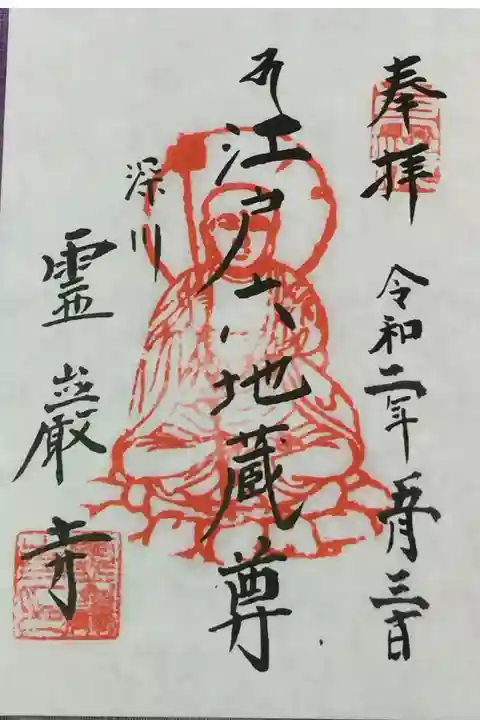 奉拝 令和二年 五月三十日
江戸六地蔵尊
深川
霊巌寺